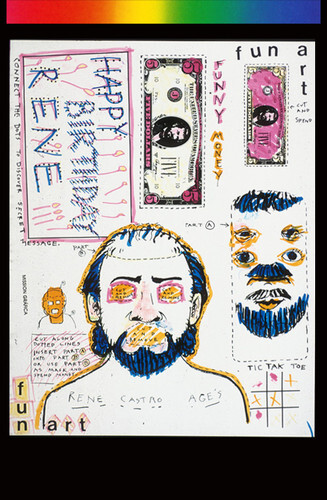 fun art
HAPPY
BIRTHDAY
RENE
CONNECT THE DOTS TO DISCOVER SECRET
MESSAGE.
FIVE DOLLARS
THE UNITED STATES OF AMERICA
FIVE
5
FUNNY
MONEY
← CUT
AND
SPEND
PART A →
PART
B
MISSION GRAFICA
CUT ALONG
DOTTED LINES
INSERT PART A
INTO PART B
OR USE PART B
AS MASK AND
SPEND MONEY.
TIC TAK TOE
RENE CASTRO AGE 5
fun art